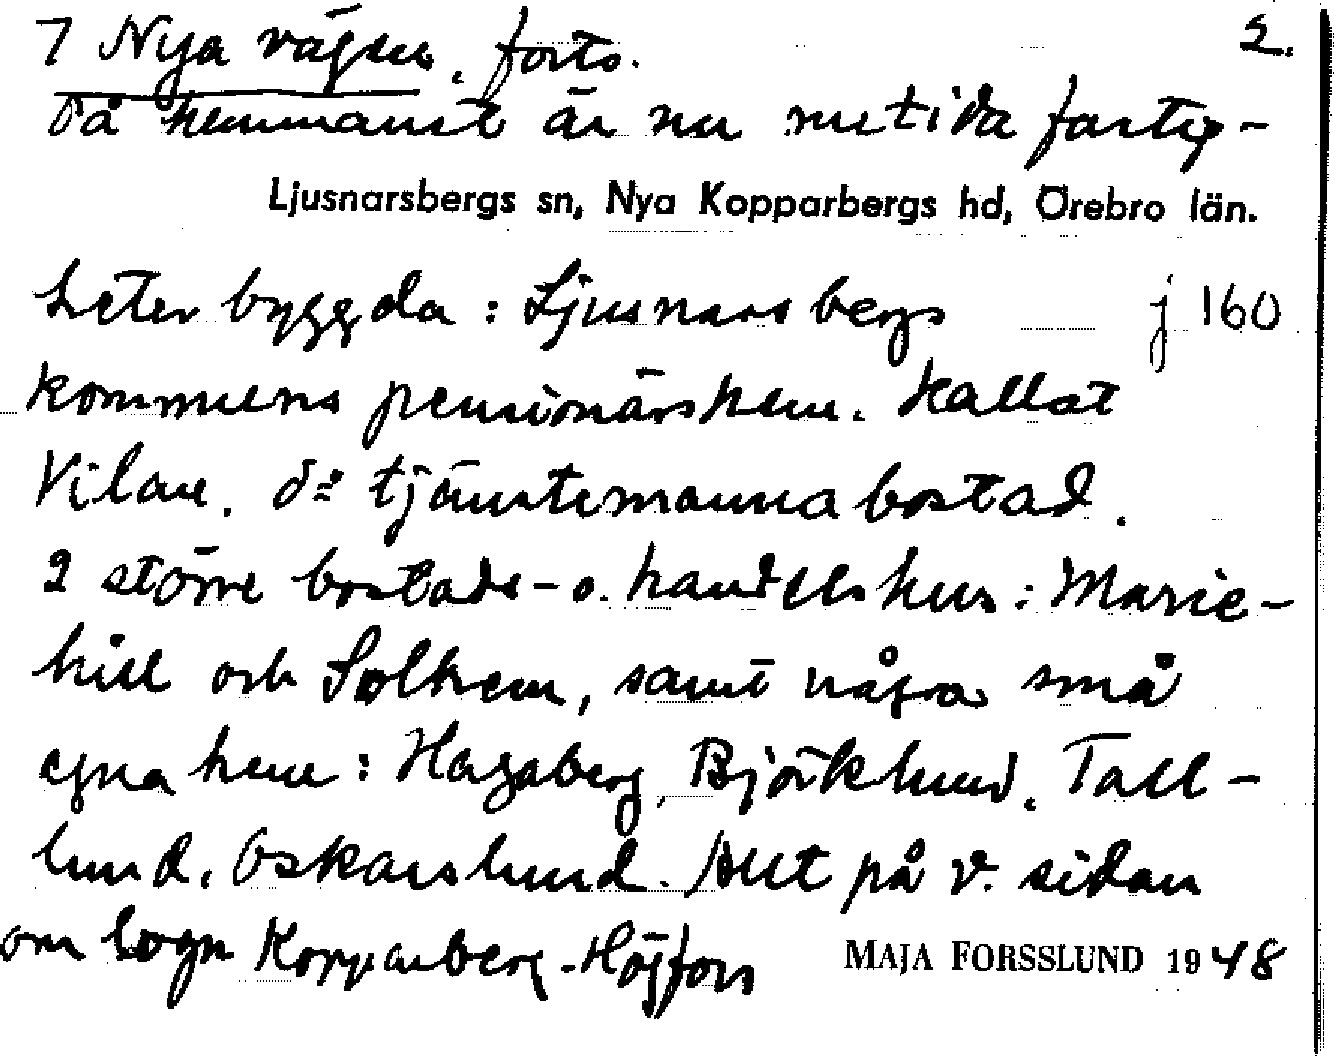 7 Nya vägen, forts. 2.
På hemmanet är nu nutida fastig-
Ljusnarsbergs sn, Nya Kopparbergs hd, Örebro län.
heter byggda: Ljusnarsbergs j 160
kommuns pensionärshem. kallat
Vilan. d:o tjänstemannabostad.
2 större bostads- o. handelshus: Marie-
hill och Solhem, samt några små
egna hem: Hagaberg, Björklund, Tall-
lund, Oskarslund. Allt på v. sidan
om logn Kopparberg-Högfors MAJA FORSSLUND 1948